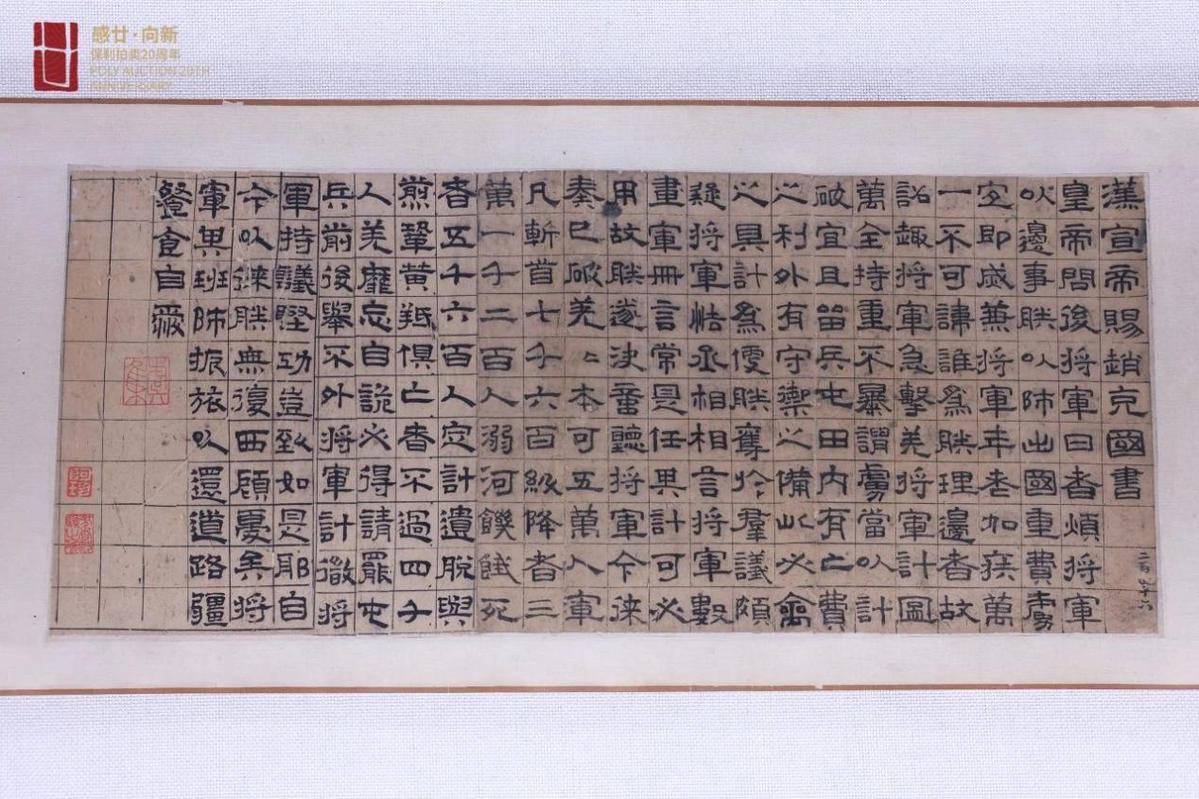 感廿·向新
保利拍卖20周年
POLY AUCTION 20TH
ANNIVERSARY
漢宣帝賜趙充國書
皇帝問後將軍曰者煩將軍
以邊事朕以師出國重費虜
宜即烕兼將軍年老加疾萬
一不可諱誰為朕理邊者故
詔趣將軍急擊羌將軍計圖
萬全持重不暴謂虜當以計
破宜且留兵屯田內有亡費
之利外有守禦之備此必禽
之具計為便朕奪於羣議頗
疑將軍丞相相言將軍數
畫軍冊言常是任其計可必
用故朕遂決垂聽將軍今徠
奏已破羌〻本可五萬人軍
凡斬首七千六百級降者三
萬一千二百人溺河饑餓死
者五千六百人定計遺脫與
煎鞏黃羝俱亡者不過四千
人羌靡忘自詭必得請罷屯
兵前後舉不外將軍計徹將
軍持議堅功豈致如是耶自
今以徠朕無復西顧憂矣將
軍其班師振旅以還道路彊
餐食自愛